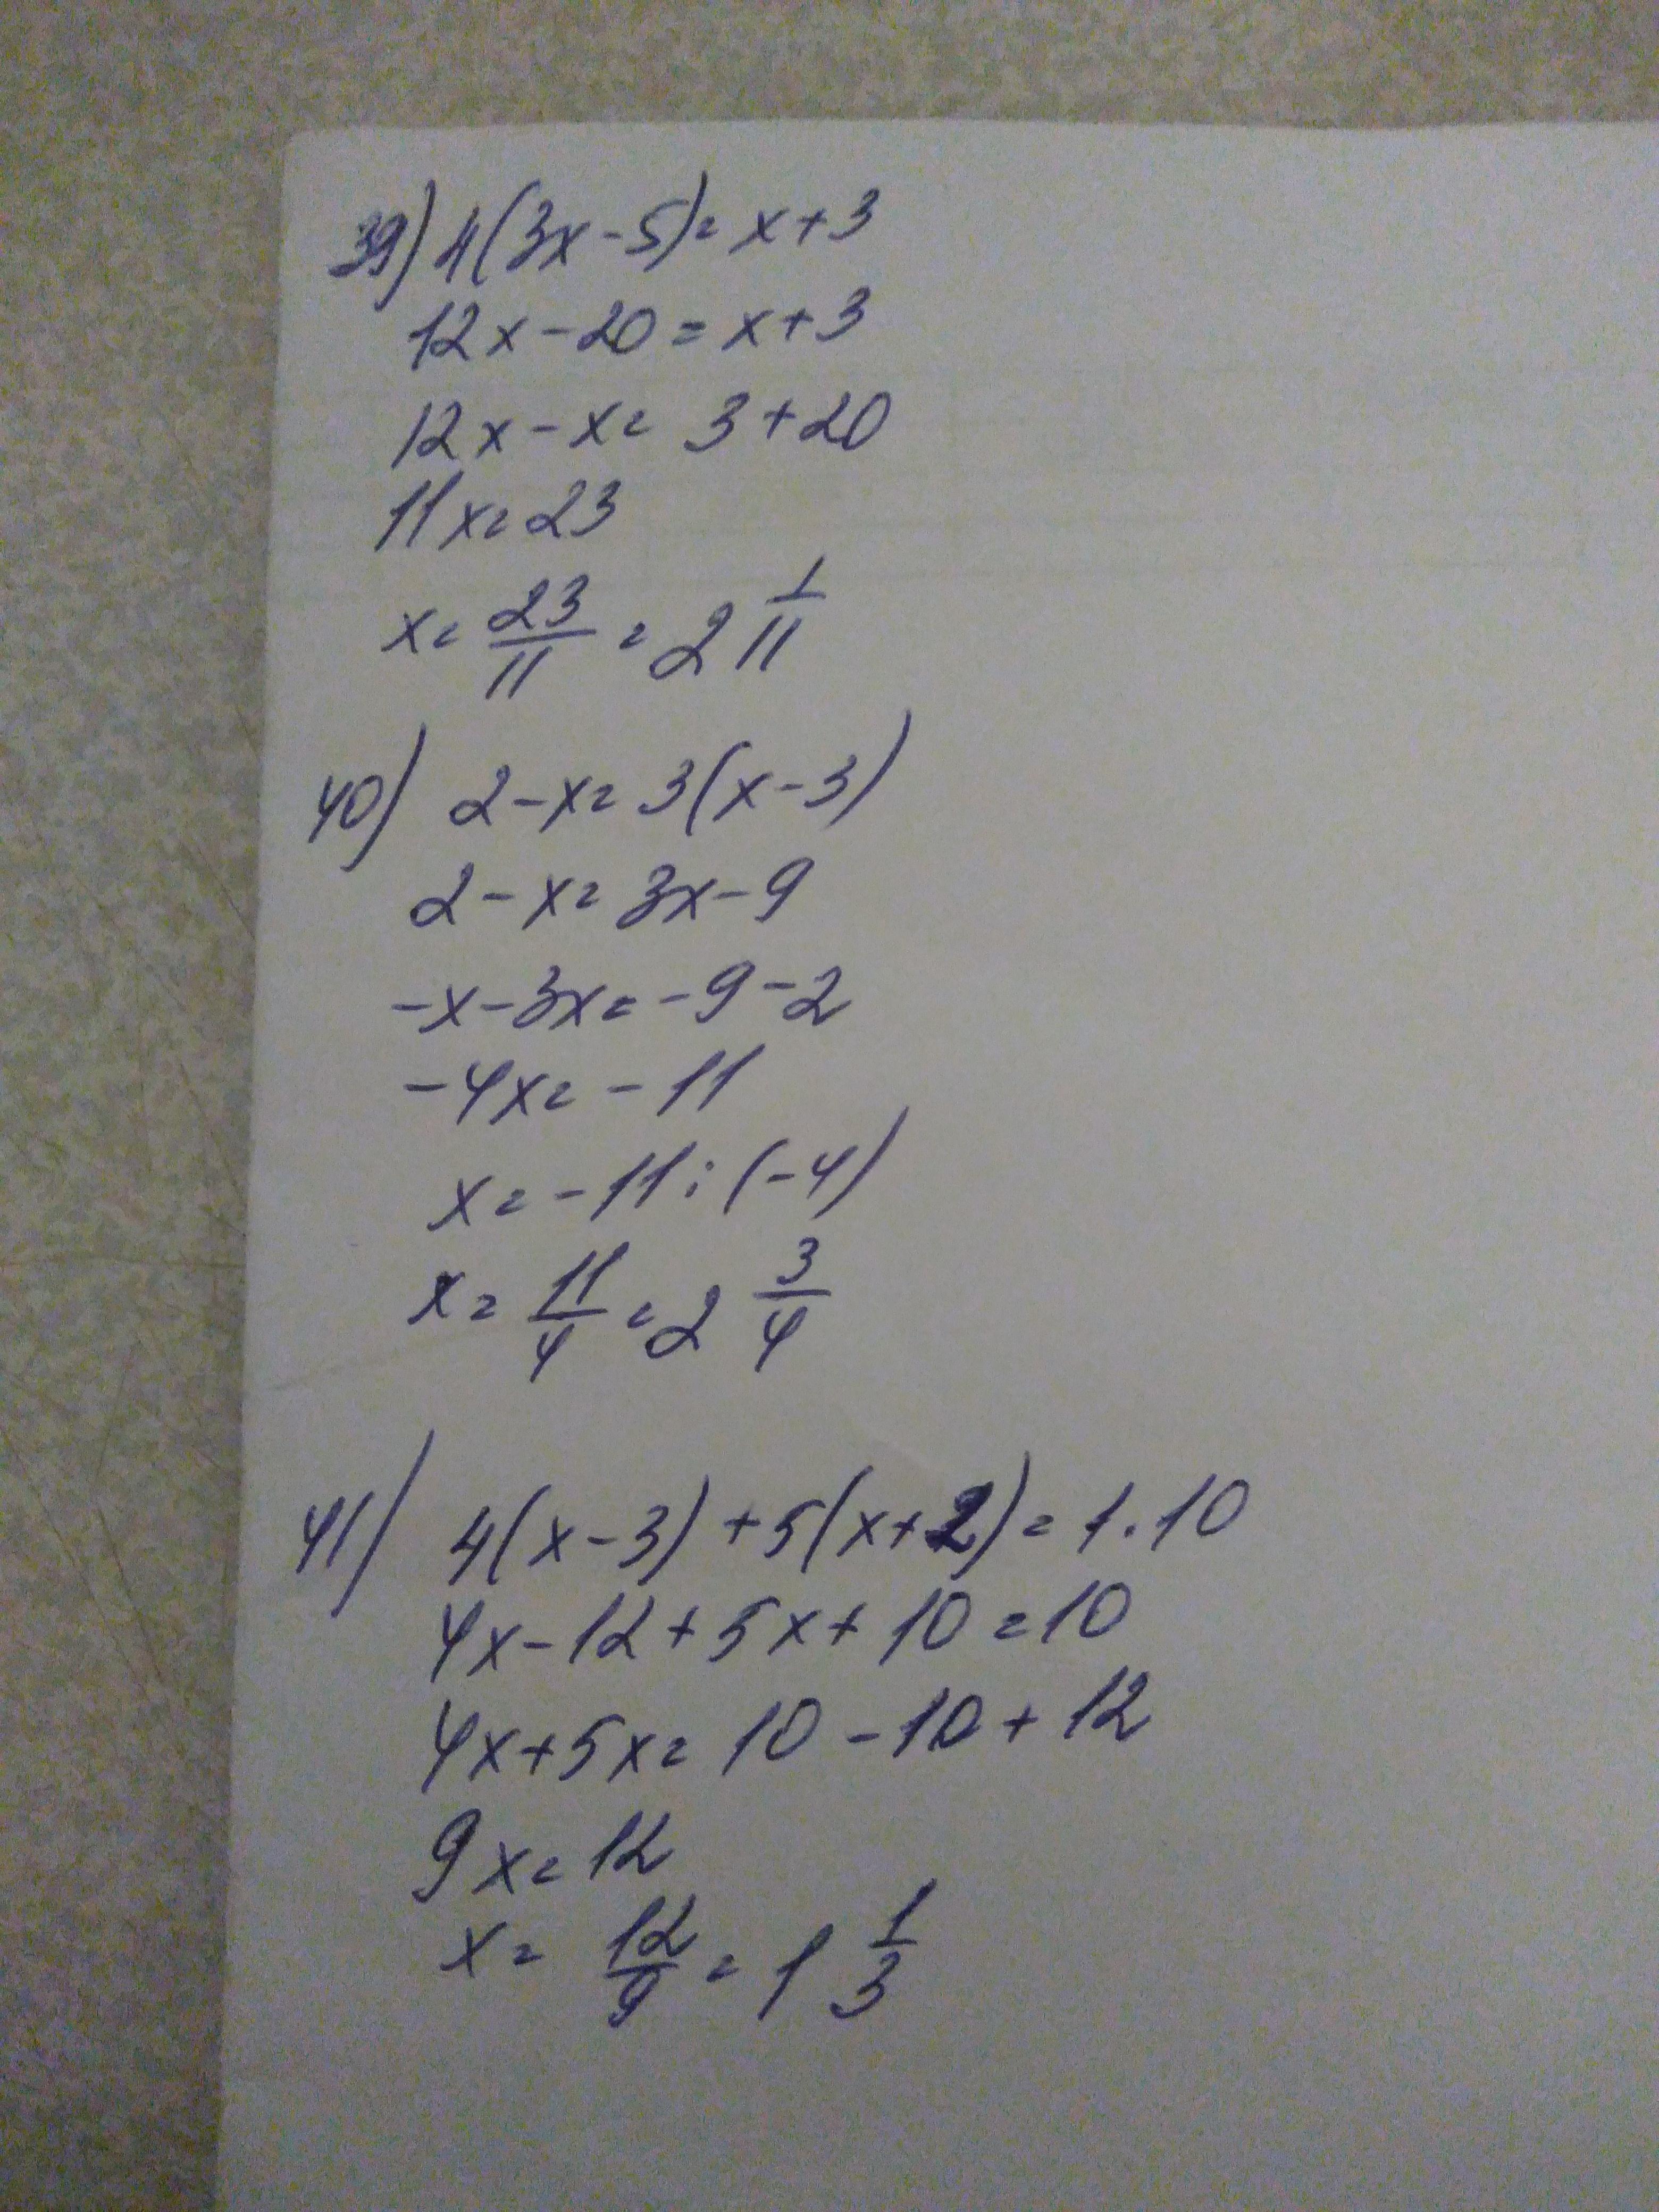 39) 4(3x-5)=x+3
12x-20=x+3
12x-x=3+20
11x=23
x=23/11=2 1/11
40) 2-x=3(x-3)
2-x=3x-9
-x-3x=-9-2
-4x=-11
x=-11:(-4)
x=11/4=2 3/4
41) 4(x-3)+5(x+2)=1·10
4x-12+5x+10=10
4x+5x=10-10+12
9x=12
x=12/9=1 1/3